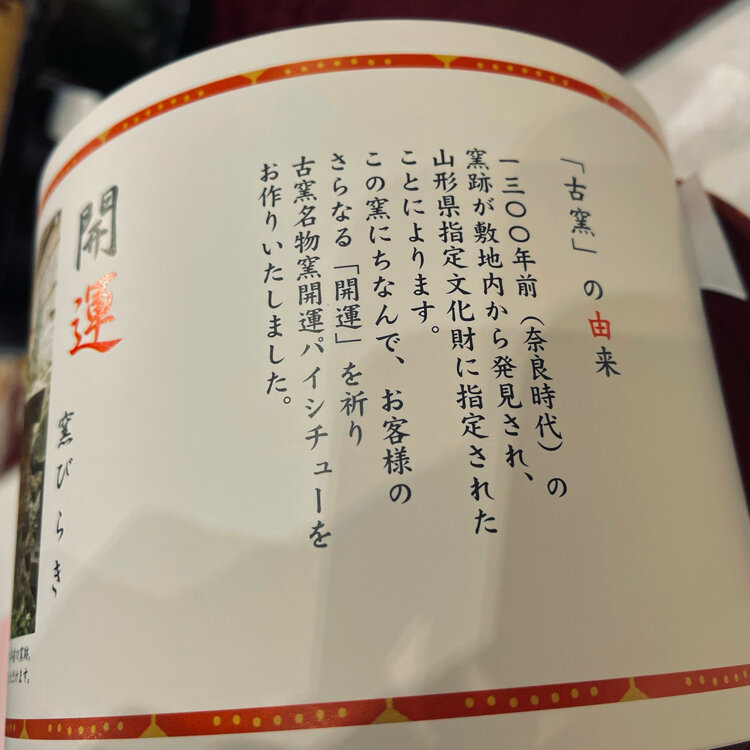 「古窯」の由来
一三〇〇年前（奈良時代）の
窯跡が敷地内から発見され、
山形県指定文化財に指定された
ことによります。
この窯にちなんで、お客様の
さらなる「開運」を祈り
古窯名物窯開運パイシチューを
お作りいたしました。
開運
窯びらき